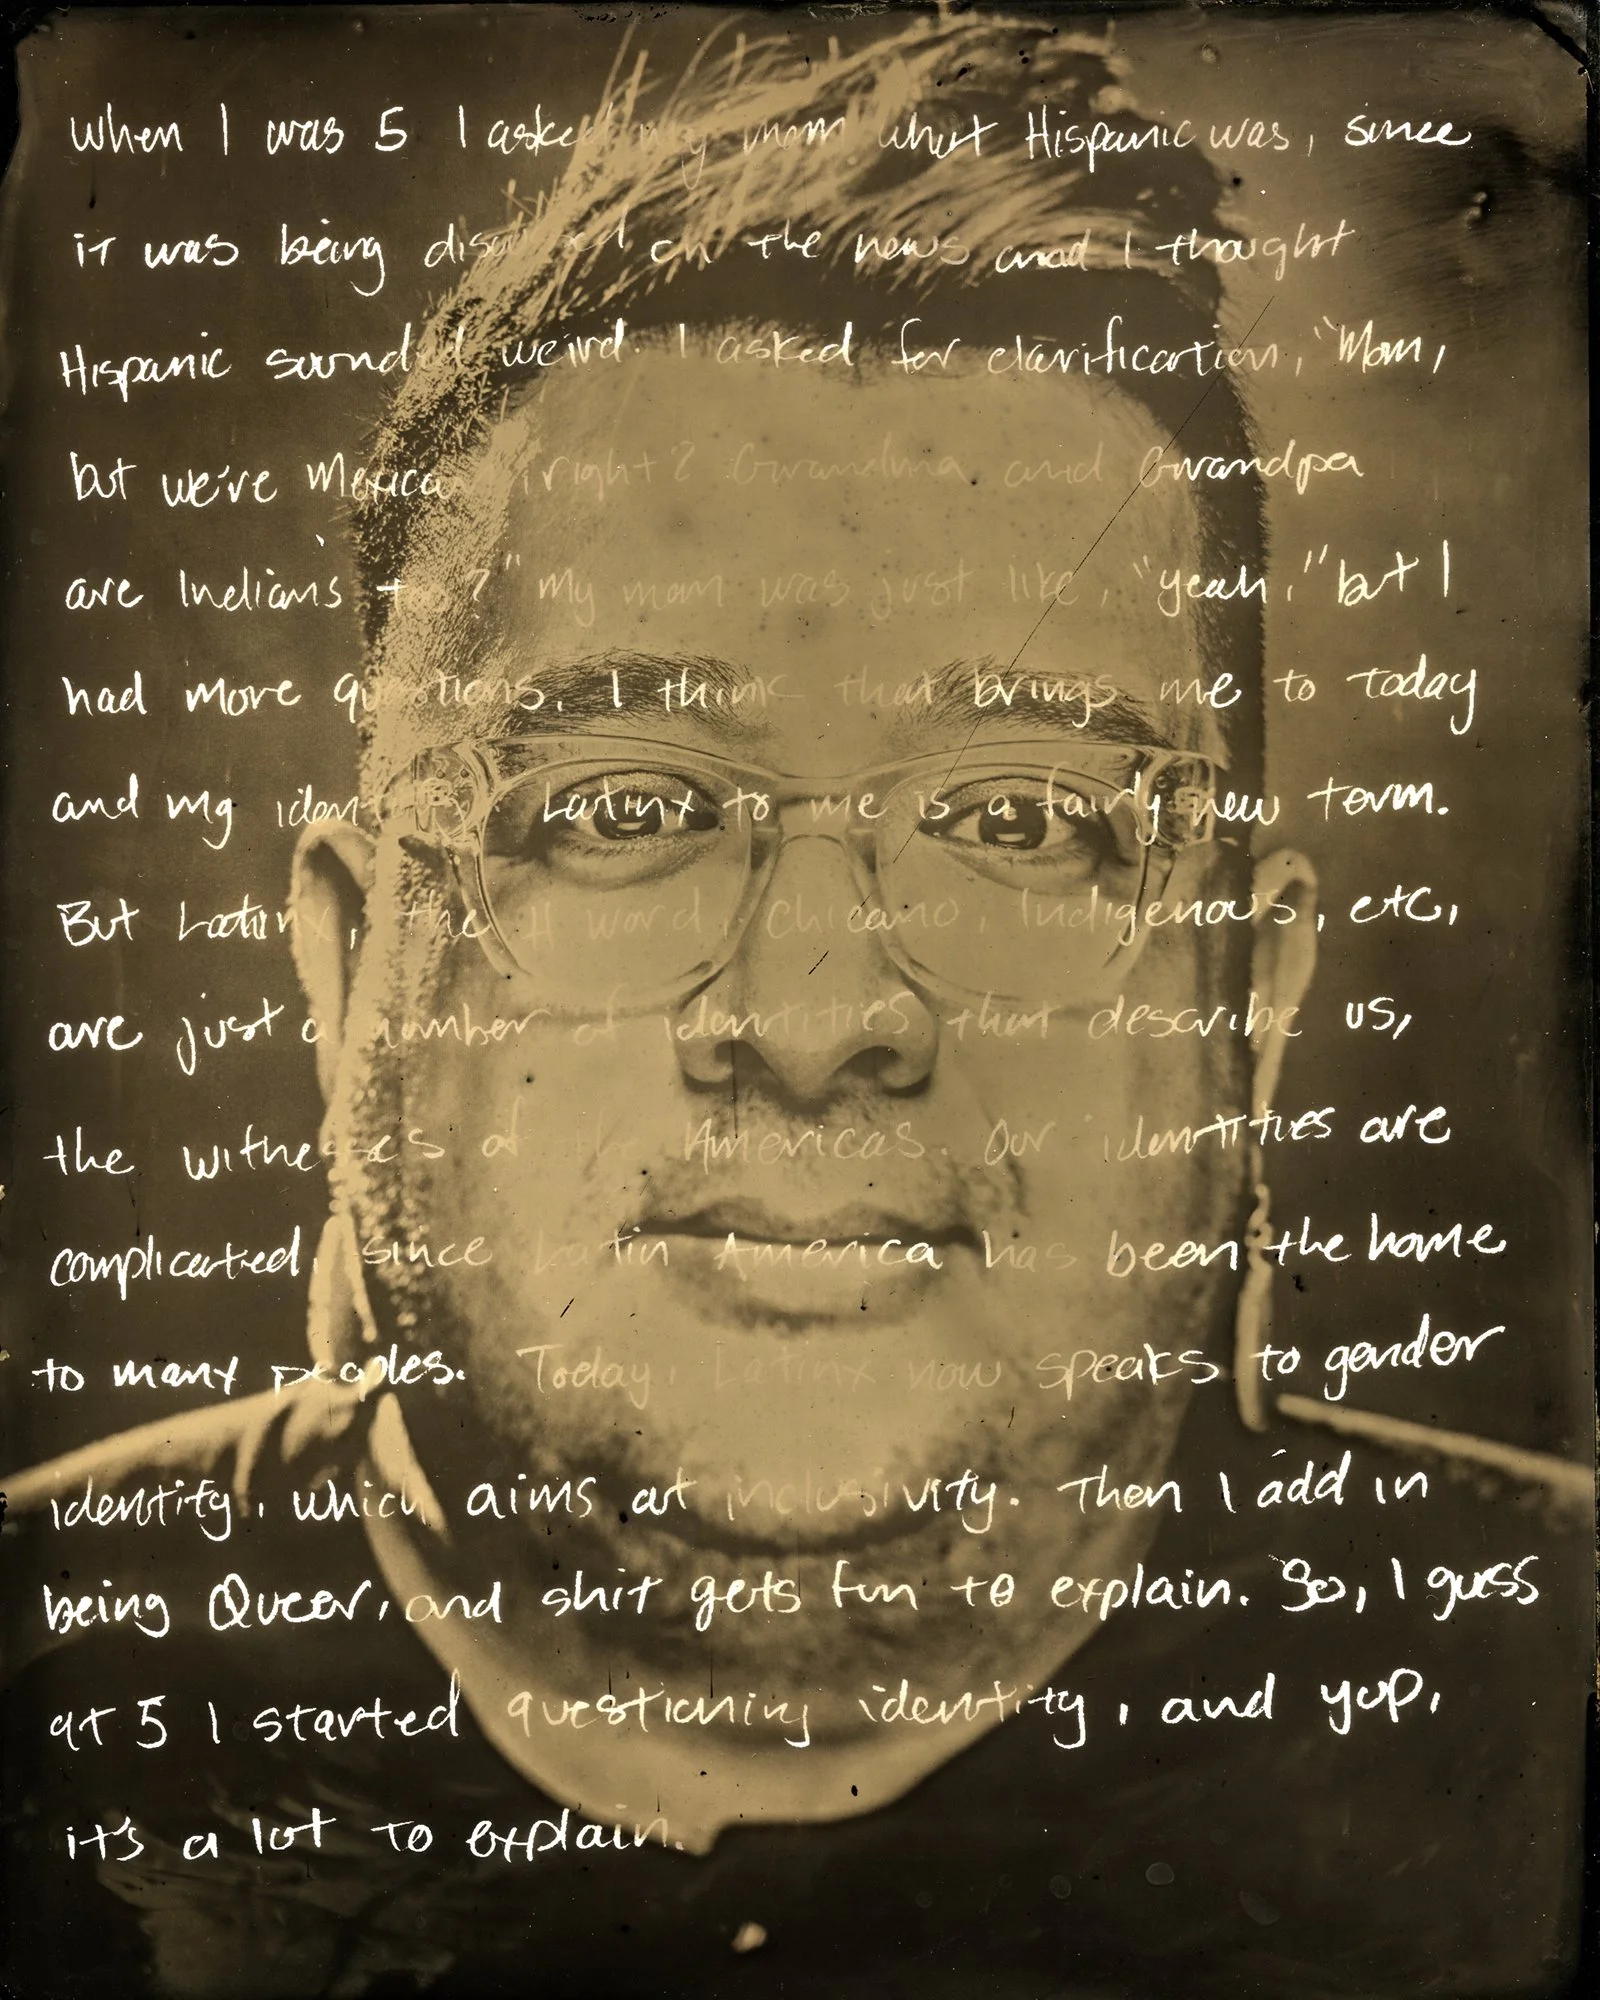 When I was 5 I asked my mom what Hispanic was, since
it was being discussed on the news and I thought
Hispanic sounded weird. I asked for clarification, "Mom,
but we're Mexican, right? Grandma and Grandpa
are Indians too?" My mom was just like, "yeah," but I
had more questions. I think that brings me to today
and my identity. Latinx to me is a fairly new term.
But Latinx, the H word, Chicano, Indigenous, etc,
are just a number of identities that describe us,
the witnesses of the Americas. Our identities are
complicated, since Latin America has been the home
to many peoples. Today, Latinx now speaks to gender
identity, which aims at inclusivity. Then I add in
being Queer, and shit gets fun to explain. So, I guess
at 5 I started questioning identity, and yup,
it's a lot to explain.